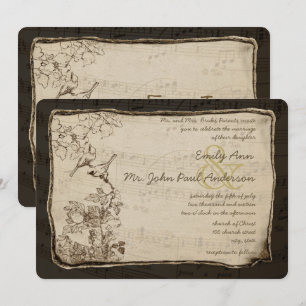 Mr. and Mrs. Brides Parents invite
you to celebrate the marriage
of their daughter
Emily Ann
&
Mr. John Paul Anderson
saturday the fifth of july
two thousand sixteen
two o'clock in the afternoon
church of Christ
102 church street
city, state
reception to follow